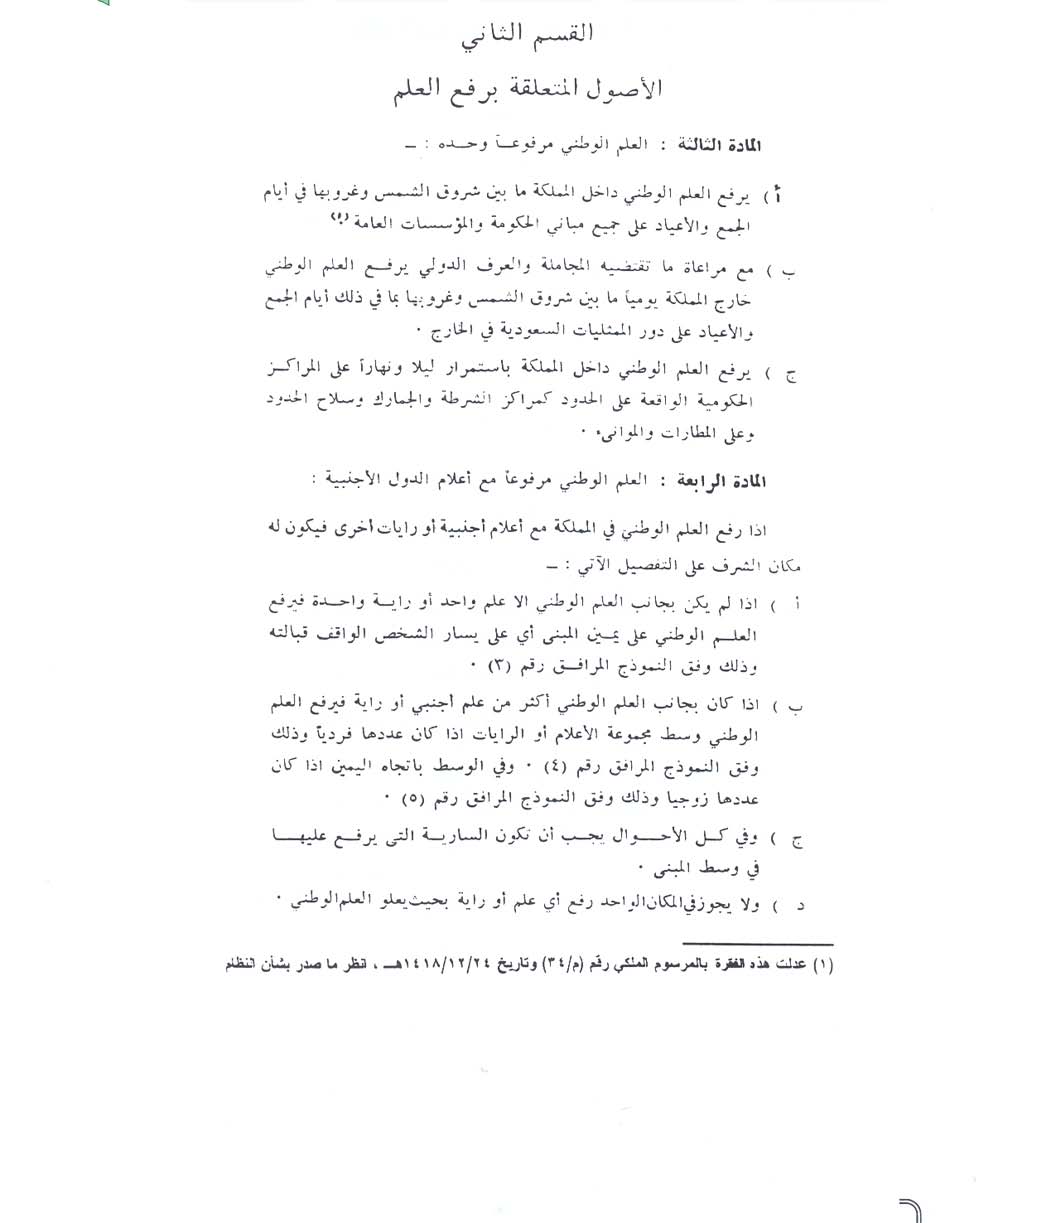 القسم الثاني
الأصول المتعلقة برفع العلم
المادة الثالثة : العلم الوطني مرفوعـاً وحـده : ـ
أ ) يرفع العلم الوطني داخل المملكة ما بين شروق الشمس وغروبها في أيام
الجمع والأعياد على جميع مباني الحكومة والمؤسسات العامة (١)
ب ) مع مراعاة ما تقتضيه المجاملة والعرف الدولي يرفـع العلم الوطني
خارج المملكة يومياً ما بين شروق الشمس وغروبها بما في ذلك أيام الجمع
والأعياد على دور الممثليات السعودية في الخارج .
ج ) يرفع العلم الوطني داخل المملكة باستمرار ليلا ونهاراً على المراكـز
الحكومية الواقعة على الحدود كمراكز الشرطة والجمارك وسلاح الحدود
وعلى المطارات والموانىء .
المادة الرابعة : العلم الوطني مرفوعاً مع أعلام الدول الأجنبية :
اذا رفع العلم الوطني في المملكة مع أعلام أجنبية أو رايات أخرى فيكون له
مكان الشرف على التفصيل الآتي : ـ
أ ) اذا لم يكن بجانب العلم الوطني الا علم واحد أو رايـة واحـدة فيرفع
العلـم الوطني على يمـين المبنى أي على يسار الشخص الواقف قبالته
وذلك وفق النموذج المرافـق رقم (٣) .
ب ) اذا كان بجانب العلم الوطني أكثر من علم أجنبي أو راية فيرفع العلم
الوطني وسط مجموعة الأعلام أو الرايات اذا كان عددها فردياً وذلك
وفق النموذج المرافق رقم (٤) . وفي الوسط باتجاه اليمين اذا كان
عددها زوجيا وذلك وفق النموذج المرافق رقم (٥) .
ج ) وفي كـل الأحـوال يجـب أن تكون الساريـة التى يرفـع عليهـا
في وسط المبنى .
د ) ولا يجوز في المكان الواحد رفع أي علم أو راية بحيث يعلو العلم الوطني .
(١) عدلت هذه الفقرة بالمرسوم الملكي رقم (م/٣٤) وتاريخ ١٤١٨/١٢/٢٤هـ ، انظر ما صدر بشأن النظام